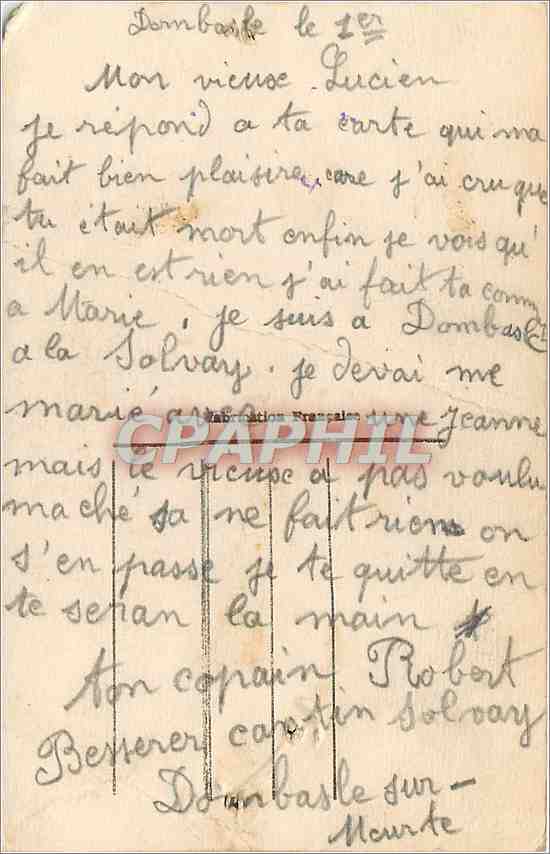 Dombasle le 1er
Mon vieux Lucien
je répond a ta carte qui ma
fait bien plaisire, care j'ai cru que
tu était mort enfin je vois qu'
il en est rien j'ai fait ta comm
a Marie. je suis a Dombasle
a la Solvay. je devai me
marié une Jeanne
Fabrication Française
CPAPHIL
mais le vieux a pas voulu
maché sa ne fait rien on
s'en passe je te quitte en
te seran la main
ton copain Robert
Besserer cantin Solvay
Dombasle sur-
Meurte